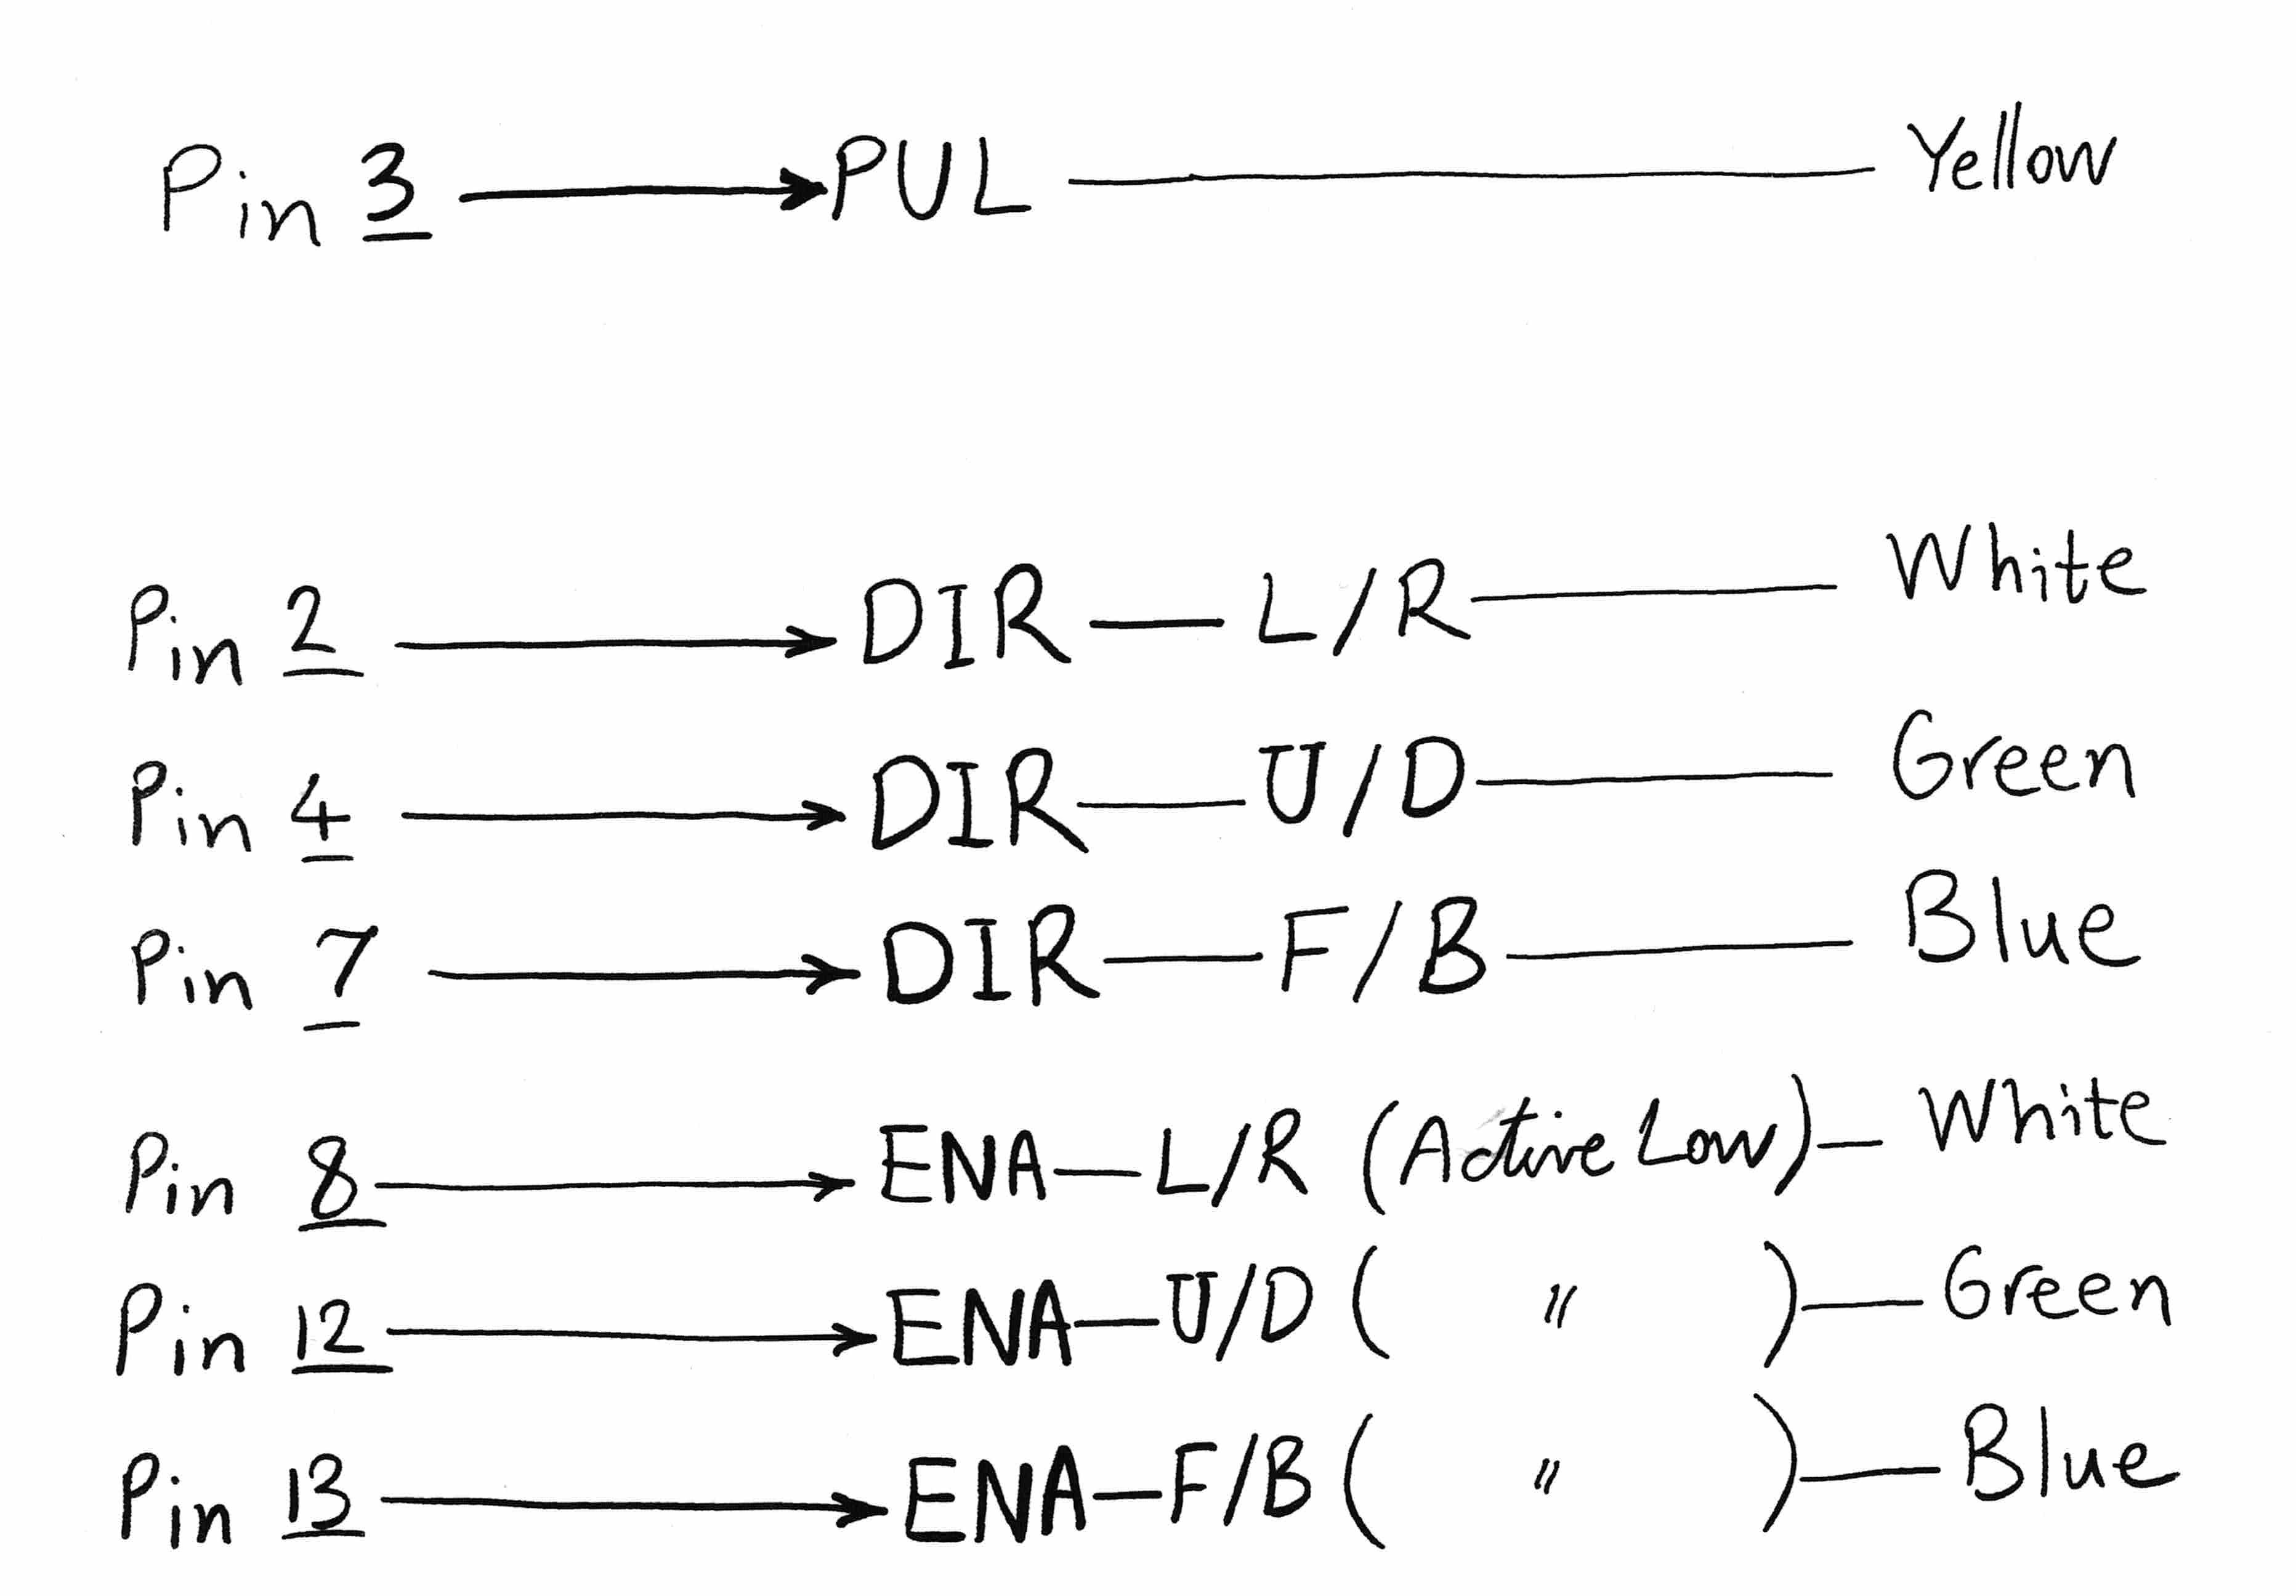 Pin 3 → PUL — Yellow
Pin 2 → DIR — L/R — White
Pin 4 → DIR — U/D — Green
Pin 7 → DIR — F/B — Blue
Pin 8 → ENA — L/R (Active Low) — White
Pin 12 → ENA — U/D ( " ) — Green
Pin 13 → ENA — F/B ( " ) — Blue